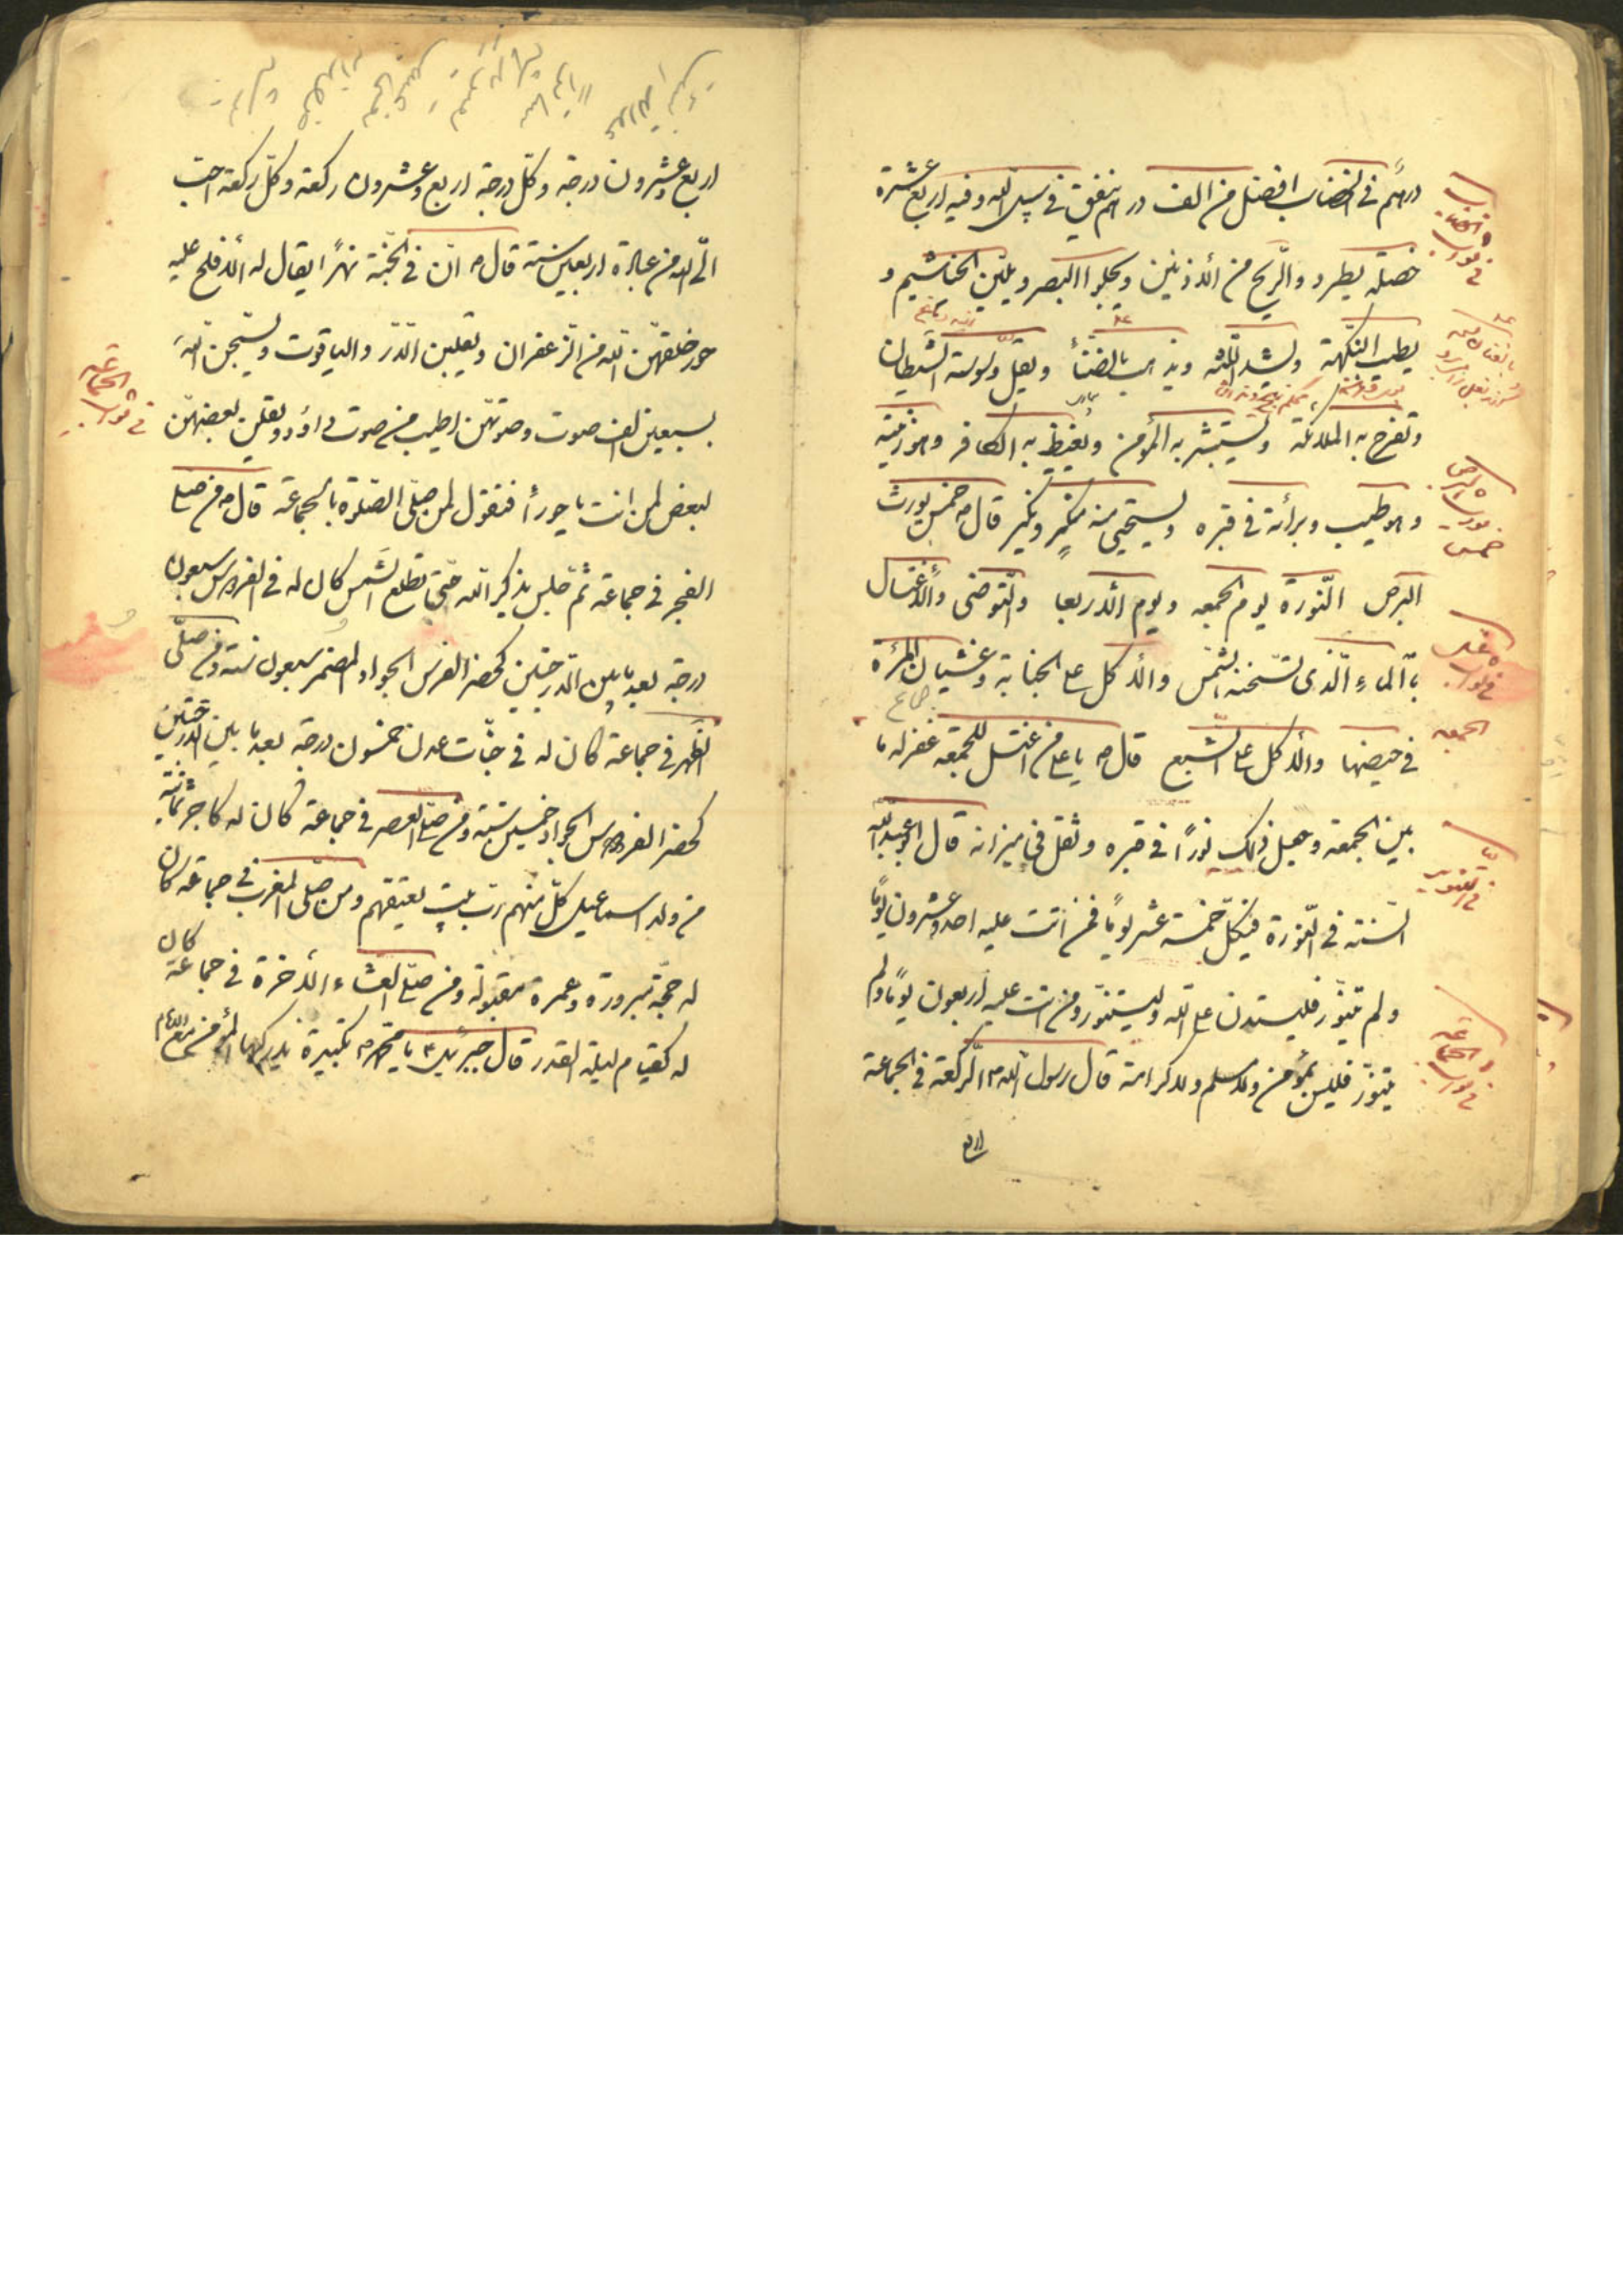 درهم في الخضاب افضل من الف درهم ينفق في سبيل الله وفيه اربع عشرة
خصلة يطرد والرّيح من الأذنين ويجلوا البصر ويليّن الخياشيم و
يطيب النّكهة ويشدّ اللّثة ويذهب بالضّنأ ويقلّ وسوسة الشّيطان
وتفرح به الملائكة ويستبشر به المؤمن ويغيظ به الكافر وهو زينة
وهو طيب وبرائة في قبره ويستحيي منه منكر ونكير قال ص خمس يورث
البرص النّورة يوم الجمعه ويوم الأربعا والتّوضى والأغتسال
بالماء الّذي تسّخنه الشّمس والأكل على الجنابة وغشيان المرئة
في حيضها والأكل على الشّبع قال ص يا على من اغتسل للجمعة غفر له ما
بين الجمعة وجعل ذلك نورًا في قبره وثقل في ميزانه قال ابو عبد الله
السّنة في النّورة في كلّ خمسة عشر يومًا فمن اتت عليه احد وعشرون يومًا
ولم يتنوّر فليستدن على الله وليستنوّر ومن اتت عليه اربعون يومًا ولم
يتنوّر فليس بمؤمن ولا مسلم ولا كرامة قال رسول الله ص الرّكعة في الجماعة
اربع
في ثواب الخضاب
خمس يورث البرص
في ثواب غسل الجمعه
في ثواب الجماعة
اربع وعشرون درجة وكلّ درجة اربع وعشرون ركعة وكلّ ركعة احبّ
الى الله من عبادة اربعين سنة قال ص انّ في الجنّة نهرًا يقال له الأفلح عليه
حور خلقهنّ الله من الزّعفران ويعلبن الدّرّ والياقوت ويسّبحن الله
بسبعين الف صوت وصوتهنّ اطيب من صوت داؤد ويقلن بعضهنّ
لبعض لمن انت يا حورأ فتقول لمن صلّى الصّلوة بالجماعة قال ص من صلّى
الفجر في جماعة ثمّ جلس يذكر الله حتّى تطلع الشّمس كان له في الفردوس سبعون
درجة بعد ما بين الدّرجتين كحضر الفرس الجواد المضمر سبعون سنة ومن صلّى
الظّهر في جماعة كان له في جنّات عدن خمسون درجة بعد ما بين الدّرجتين
كحضر الفرس الجواد خمسين سنة ومن صلّى العصر في جماعة كان له كاجر ثمانية
من ولد اسماعيل كلّ منهم ربّ بيت يعتقهم ومن صلّى المغرب في جماعة كان
له حجّة مبرورة وعمرة مقبولة ومن صلّى العشاء الأخرة في جماعة كان
له كقيام ليلة القدر قال جبرئيل ع يا محمّد ص تكبيرة يدركها المؤمن مع الأمام
في ثواب الجماعة